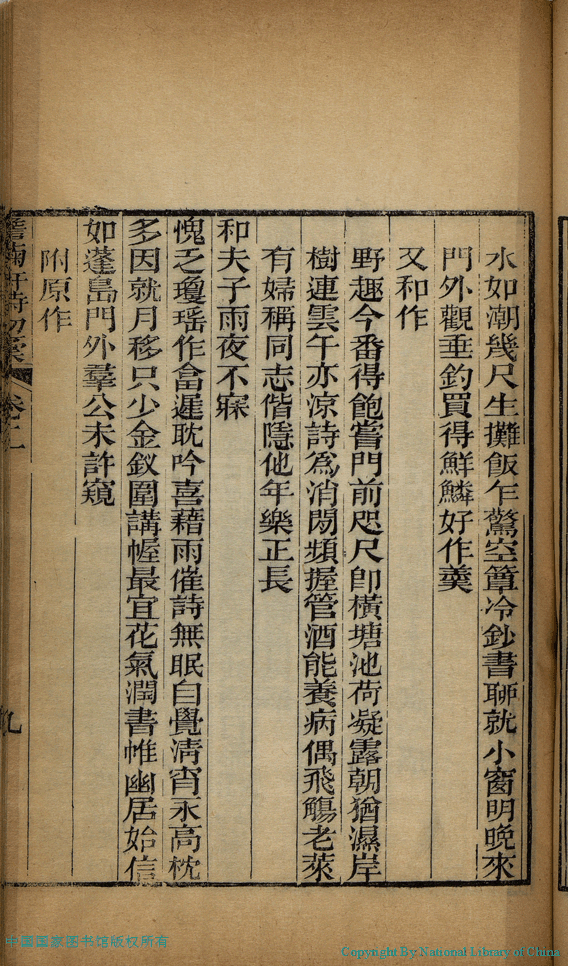 水如潮幾尺生攤飯乍驚空簟冷鈔書聊就小窗明晚來
門外觀垂釣買得鮮鱗好作羹
又和作
野趣今番得飽嘗門前咫尺卽橫塘池荷凝露朝猶濕岸
樹連雲午亦涼詩爲消閑頻握管酒能養病偶飛觴老萊
有婦稱同志偕隱他年樂正長
和夫子雨夜不寐
愧乏瓊瑤作畣遲耽吟喜藉雨催詩無眠自覺淸宵永高枕
多因就月移只少金釵圍講幄最宜花氣潤書帷幽居始信
如蓬島門外羣公未許窺
附原作
軒詩初稾 卷十二 九
中国国家图书馆版权所有
Copyright By National Library of China